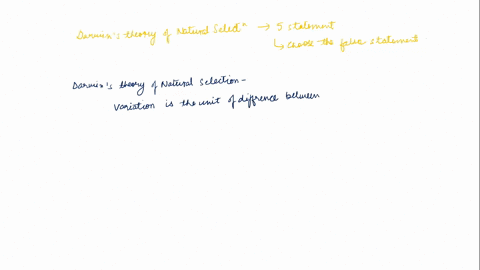 Darwin's theory of Natural Selectⁿ → 5 statement
↳ choose the false statement
Darwin's theory of Natural Selection -
Variation is the unit of diffrence between